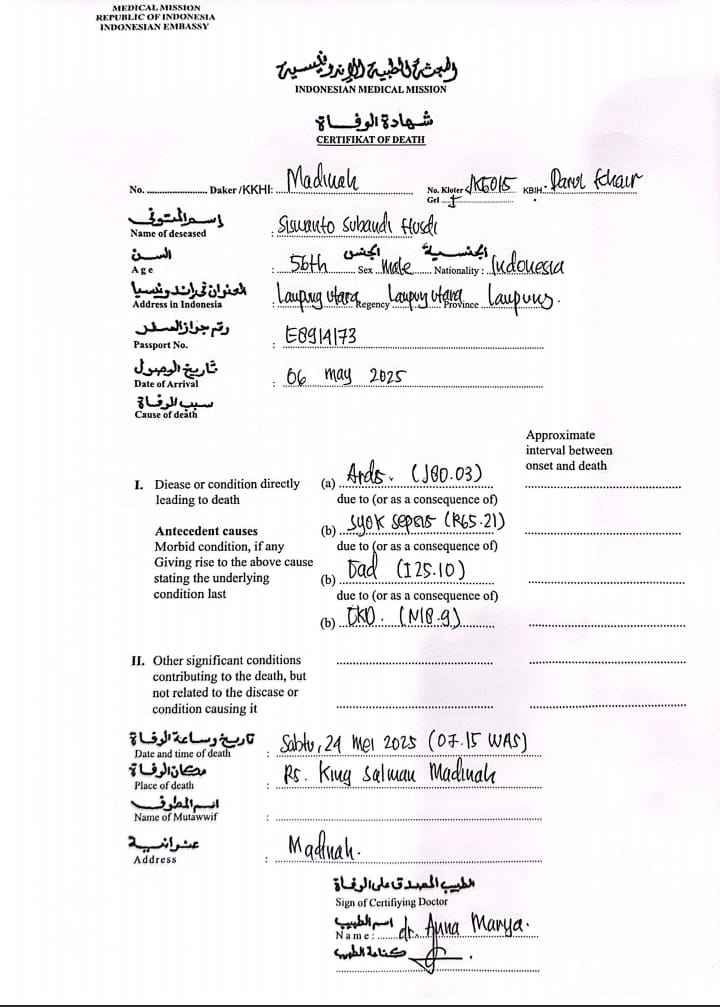 MEDICAL MISSION
REPUBLIC OF INDONESIA
INDONESIAN EMBASSY
البعثة الطبية الإندونيسية
INDONESIAN MEDICAL MISSION
شهادة الوفاة
CERTIFIKAT OF DEATH
No. ........ Daker /KKHI: Madinah No. Kloter: KBIH: Darul
Gel I
إسم المتوفى
Name of deseased : Siswanto Subandi Husdi
السن الجنس الجنسية
Age : 56th Sex Male Nationality : Indonesia
العنوان في إندونيسيا
Address in Indonesia : Lampung Utara Regency Lampung Utara Province Lampung.
رقم جواز السفر
Passport No. : E8914173
تاريخ الوصول
Date of Arrival : 06 may 2025
سبب الوفاة
Cause of death
Approximate
interval between
onset and death
I. Diease or condition directly (a) Ards. (J80.03)
leading to death due to (or as a consequence of)
Antecedent causes (b) syok sepsis (R65.21)
Morbid condition, if any due to (or as a consequence of)
Giving rise to the above cause
stating the underlying (b) (I25.10)
condition last due to (or as a consequence of)
(b) CKD. (N18.9)
II. Other significant conditions
contributing to the death, but
not related to the disease or
condition causing it
تاريخ وساعة الوفاة
Date and time of death : Sabtu, 24 Mei 2025 (07.15 WAS)
مكان الوفاة
Place of death : Rs. King Salman Madinah
اسم المطوف
Name of Mutawwif :
عنوانه
Address : Madinah.
الطبيب المصدق على الوفاة
Sign of Certifiying Doctor
اسم الطبيب
Name: dr. Anna Marya.